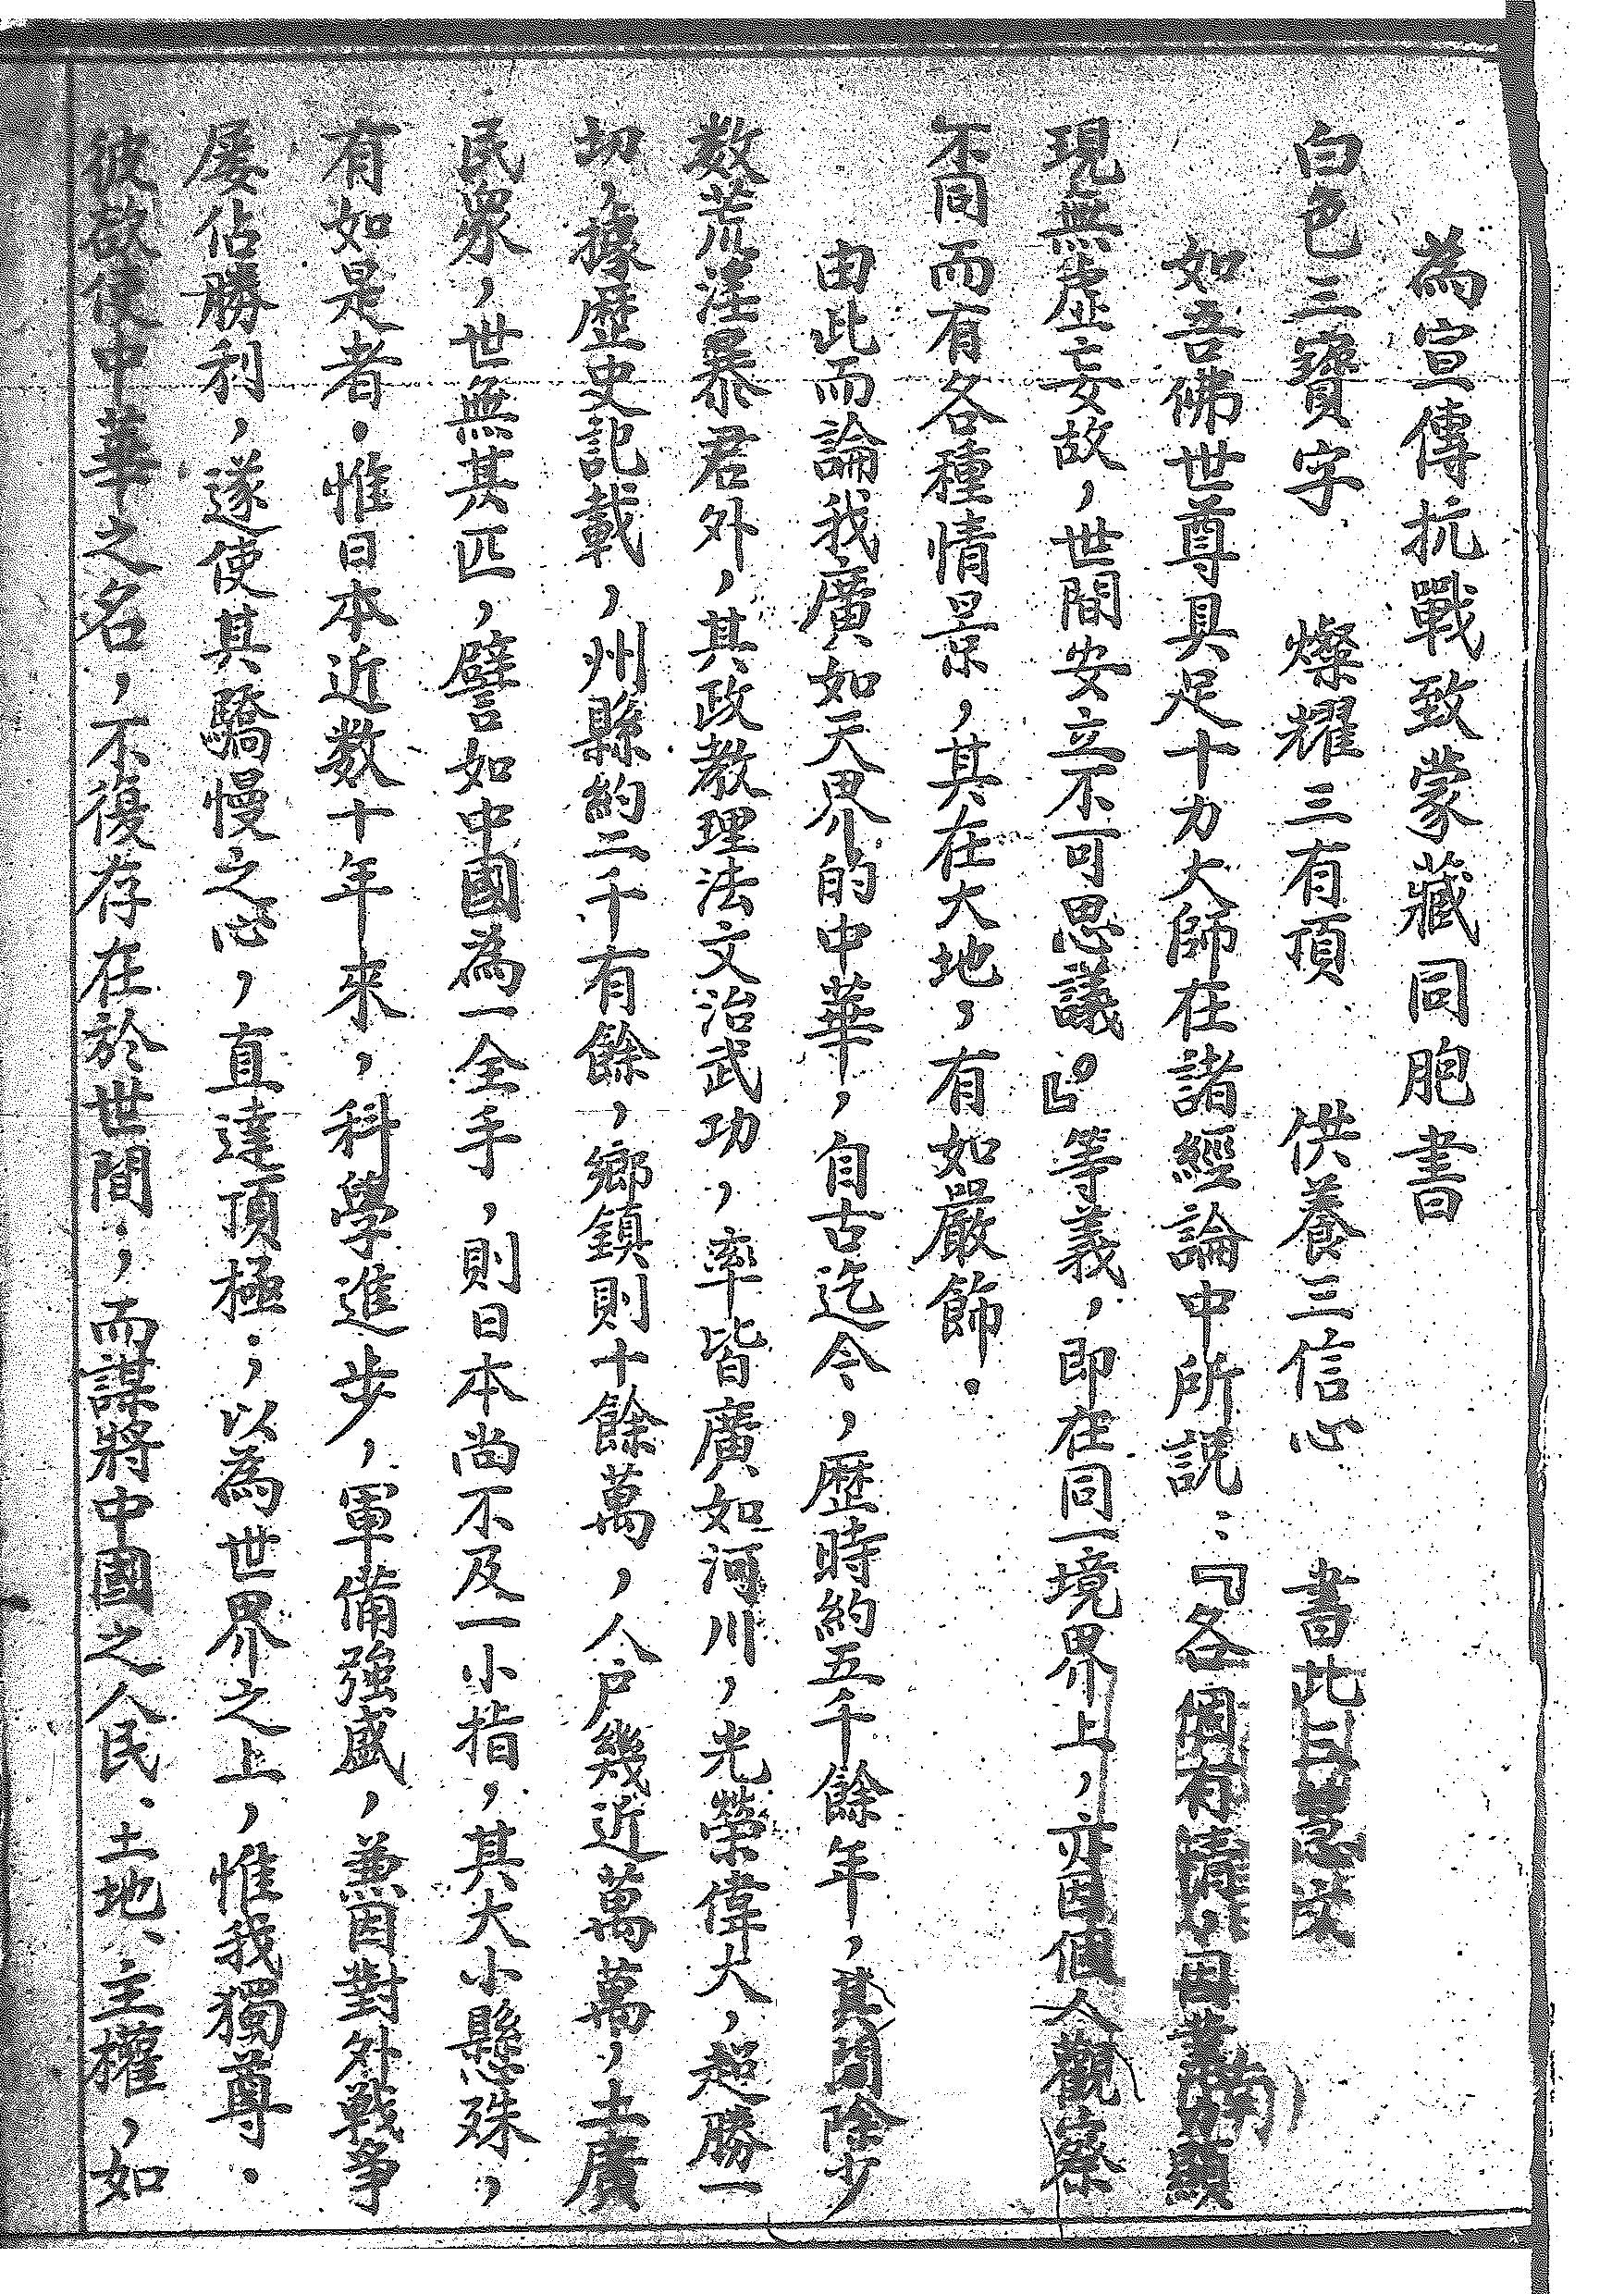 為宣傳抗戰致蒙藏同胞書
白色三寶字　燦耀三有頂　供養三信心　書此
如吾佛世尊具足十力大師在諸經論中所説：『各個有情，因業力顯
現無虛妄故，世間安立不可思議。』等義，即在同一境界上，亦因個人觀察
不同而有各種情景，其在大地，有如嚴飾．
由此而論我廣如天界的中華，自古迄今，歷時約五千餘年，其間除少
数荒淫暴君外，其政教理法文治武功，率皆廣如河川，光榮偉大，超勝一
切，據歷史記載，州縣約二千有餘，鄉鎮則十餘萬，人户幾近萬萬，土廣
民眾，世無其匹，譬如中國為一全手，則日本尚不及一小指，其大小懸殊，
有如是者．惟日本近数十年來，科學進步，軍備強盛，兼因對外戰爭
屡佔勝利，遂使其驕慢之心，直達頂極；以為世界之上，惟我獨尊．
彼欲使中華之名，不復存在於世間；而謀將中國之人民、土地、主權，如